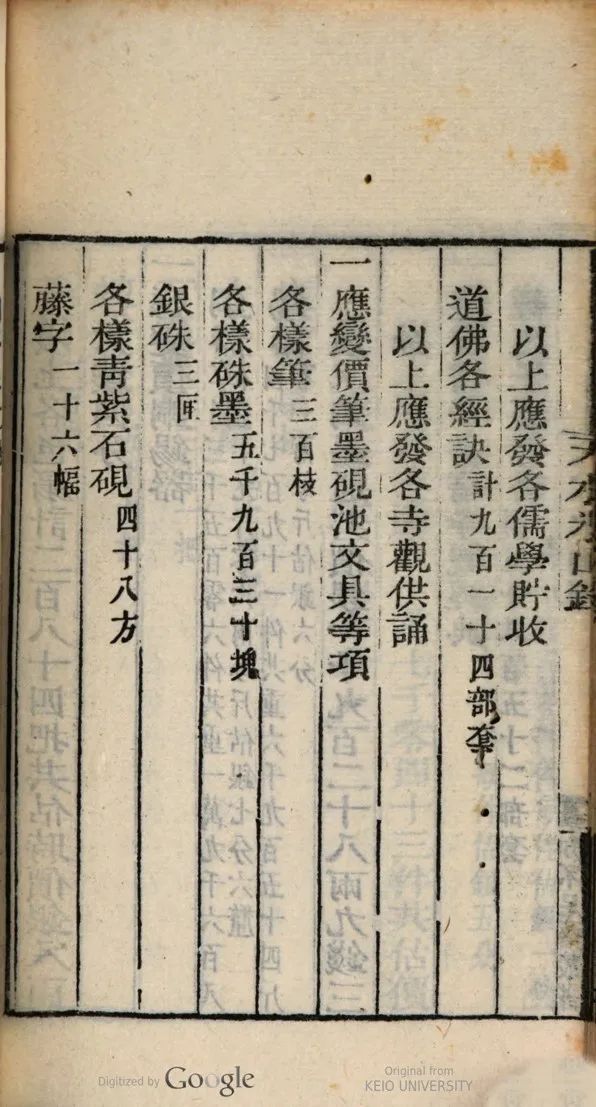 以上應發各儒學貯收
道佛各經訣計九百一十四部套
以上應發各寺觀供誦
一應變價筆墨硯池文具等項
各樣筆三百枝
各樣硃墨五千九百三十塊
銀硃三匣
各樣靑紫石硯四十八方
藤字一十六幅
Digitized by Google
Original from
KEIO UNIVERSITY